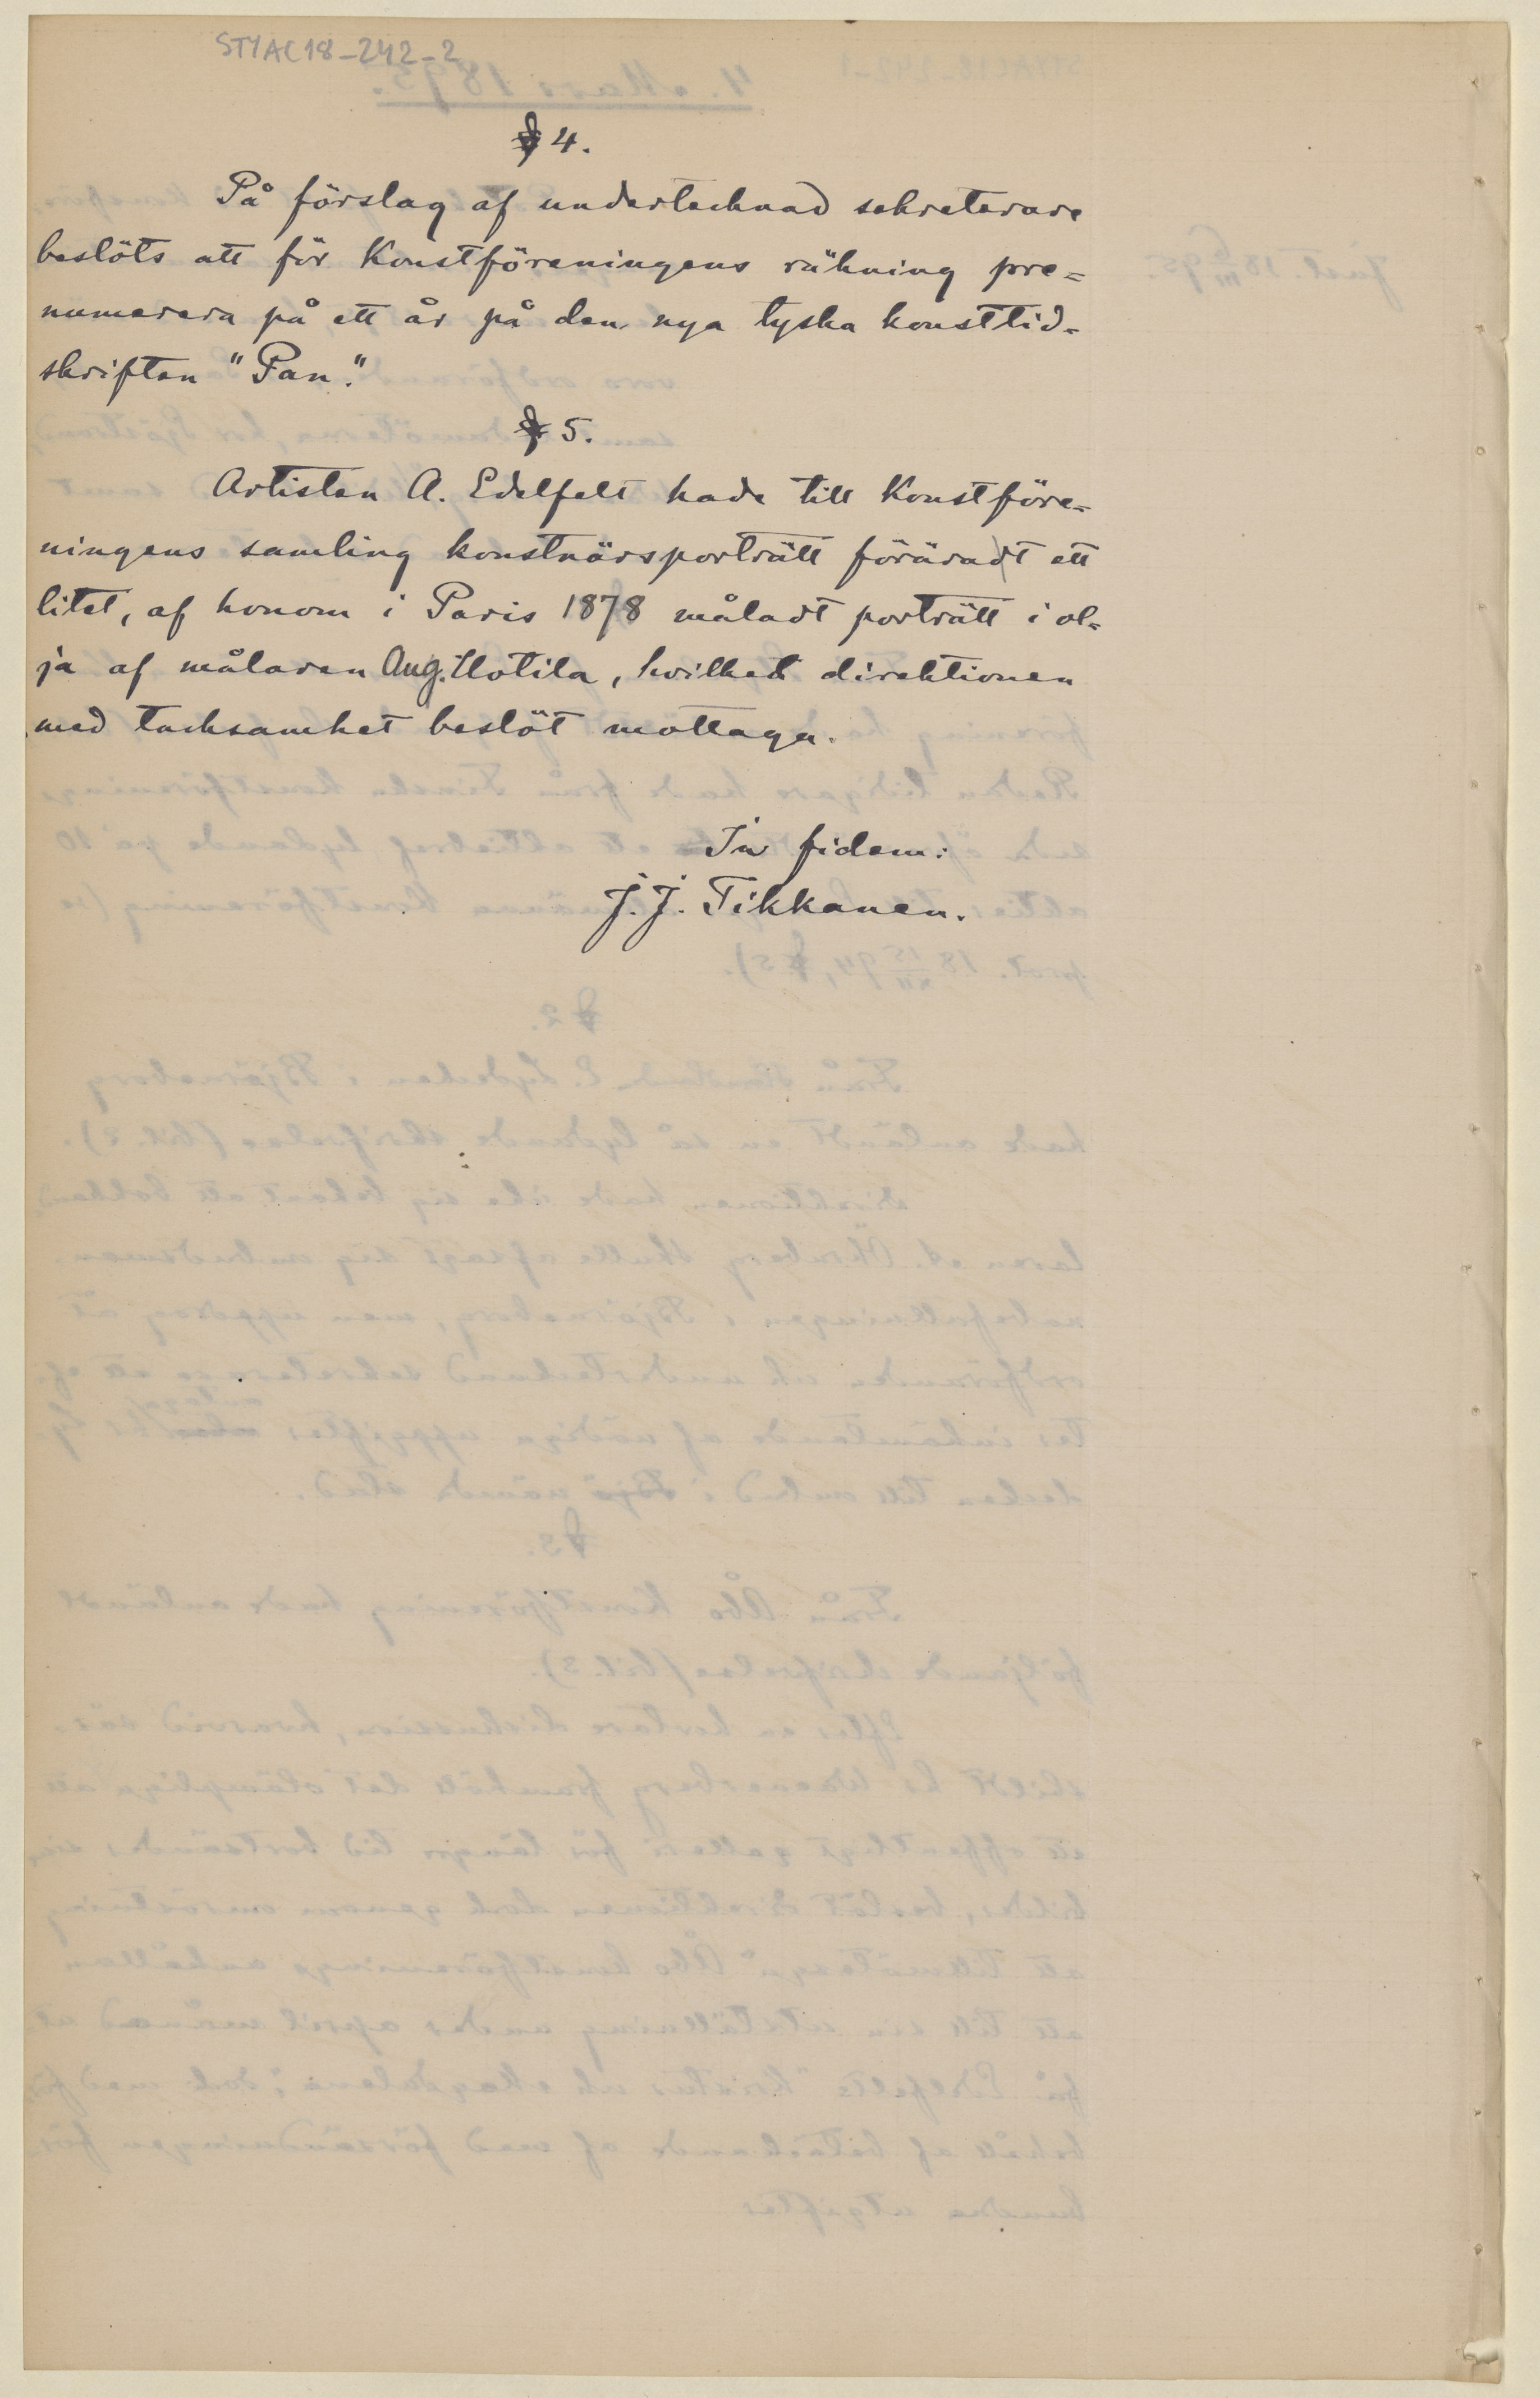 STYAC18-242-2
§ 4.
På förslag af undertecknad sekreterare
beslöts att för Konstföreningens räkning pre=
numerera på ett år på den nya tyska konsttid=
skriften "Pan."
§ 5.
Artisten A. Edelfelt hade till Konstföre=
ningens samling konstnärsporträtt föräradt ett
litet, af honom i Paris 1878 måladt porträtt i ol=
ja af målaren Aug. Uotila, hvilket direktionen
med tacksamhet beslöt mottaga.
In fidem:
J. J. Tikkanen.